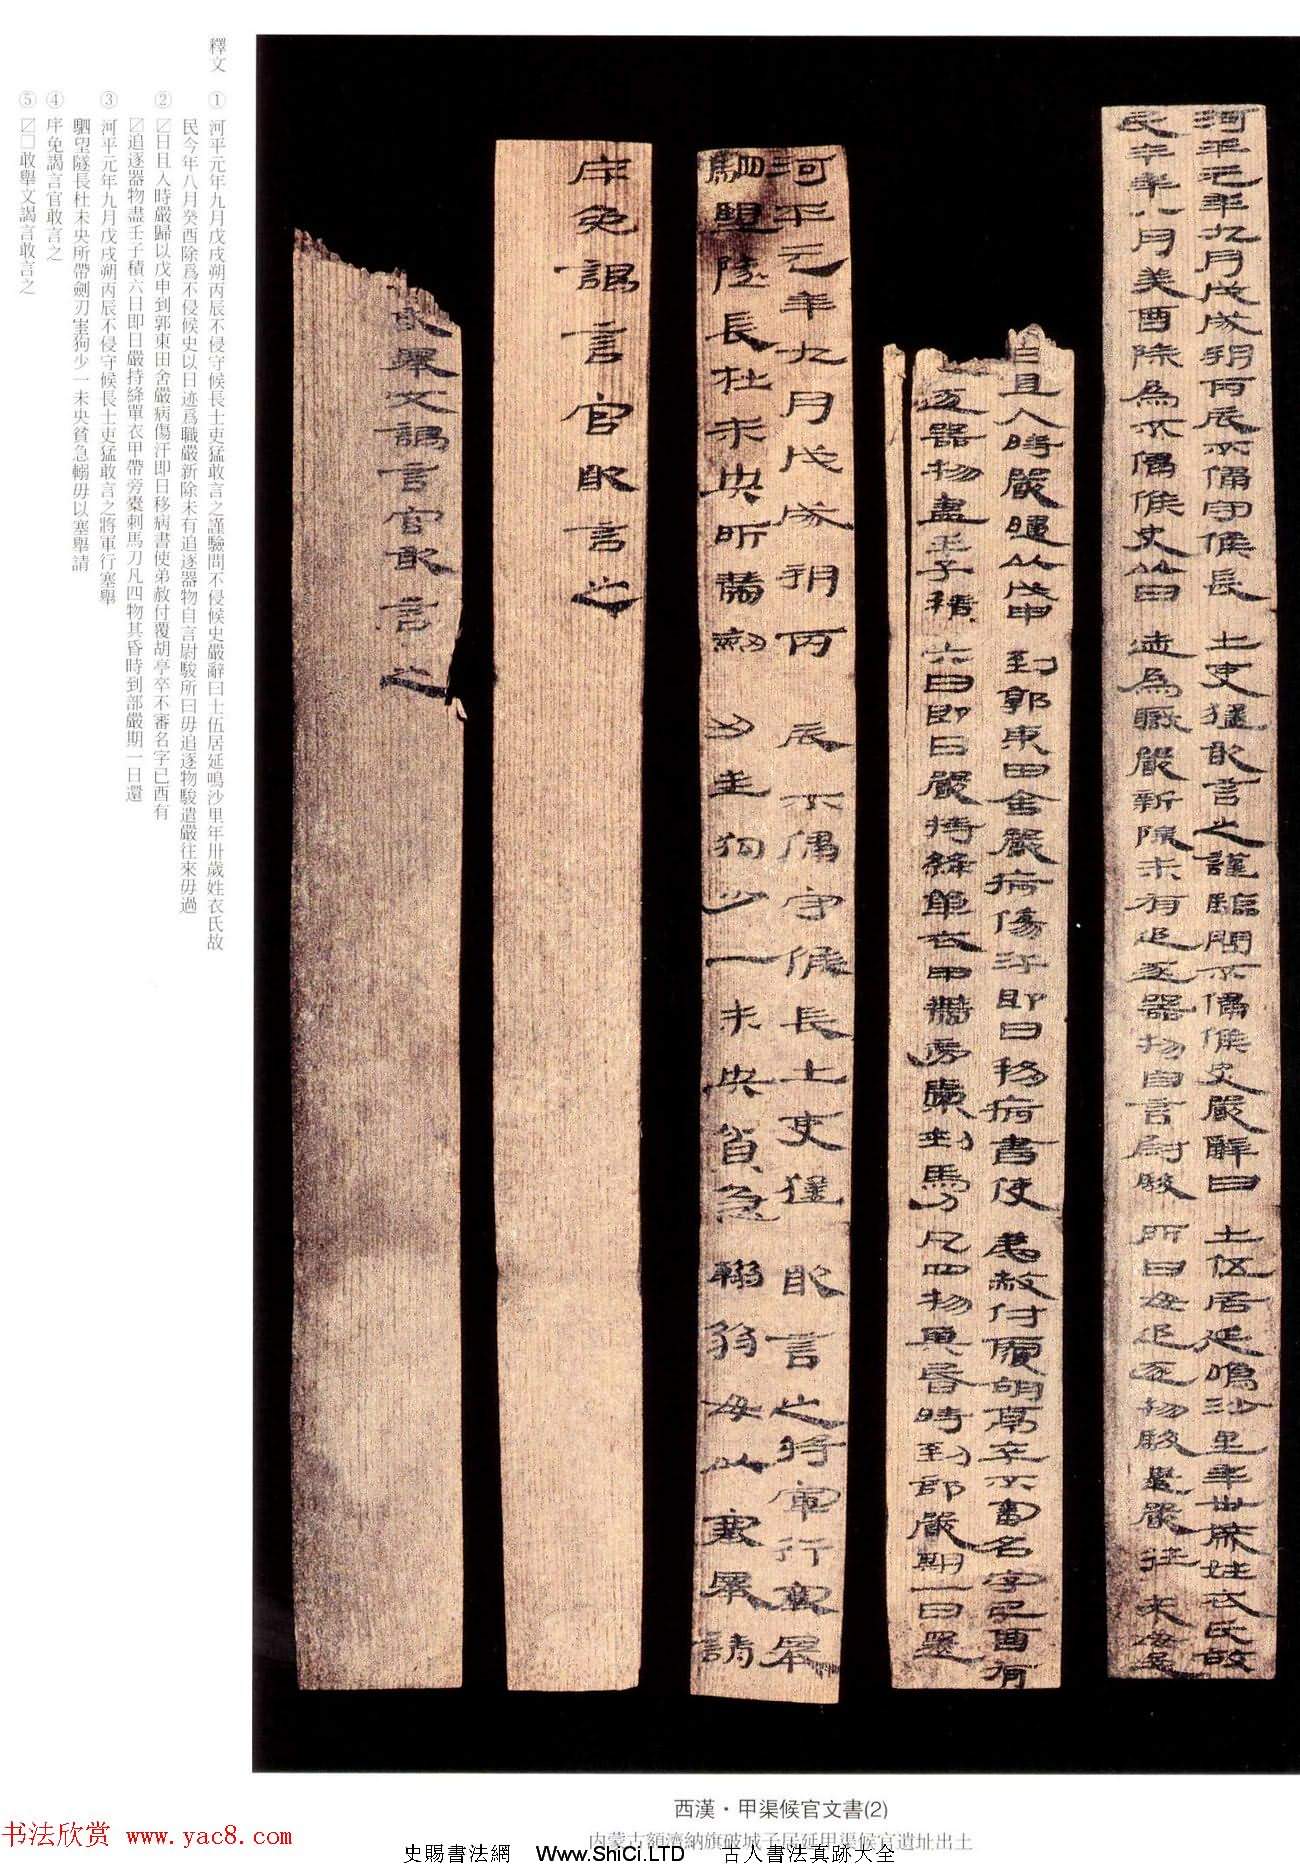 河平元年九月戊戌朔丙辰不侵守候長士吏猛敢言之謹驗問不侵候史嚴辭曰士伍居延鳴沙里年卅歲姓衣氏故
民今年八月癸酉除為不侵候史以日迹為職嚴新除未有追逐器物自言尉駿所曰毋追逐物駿遣嚴往來毋過
日且入時嚴歸以戊申到郭東田舍嚴病傷汗即日移病書使弟赦付覆胡亭卒不審名字已酉有
追逐器物盡壬子積六日即日嚴持絳單衣甲帶旁橐刺馬刀凡四物其昏時到部嚴期一日還
河平元年九月戊戌朔丙辰不侵守候長士吏猛敢言之將軍行塞舉
駟望隧長杜未央所帶劍刃㞷狗少一未央貧急輭弱毋以塞舉請
庠免謁言官敢言之
敢舉文謁言官敢言之
釋文
① 河平元年九月戊戌朔丙辰不侵守候長士吏猛敢言之謹驗問不侵候史嚴辭曰士伍居延鳴沙里年卅歲姓衣氏故
民今年八月癸酉除爲不侵候史以日迹爲職嚴新除未有追逐器物自言尉駿所曰毋追逐物駿遣嚴往來毋過
② ☑日且入時嚴歸以戊申到郭東田舍嚴病傷汗即日移病書使弟赦付覆胡亭卒不審名字已酉有
☑追逐器物盡壬子積六日即日嚴持絳單衣甲帶旁橐刺馬刀凡四物其昏時到部嚴期一日還
③ 河平元年九月戊戌朔丙辰不侵守候長士吏猛敢言之將軍行塞舉
駟望隧長杜未央所帶劍刃㞷狗少一未央貧急輭毋以塞舉請
④ 庠免謁言官敢言之
⑤ ☑□敢舉文謁言敢言之
西漢·甲渠候官文書(2)
内蒙古額濟納旗破城子居延甲渠候官遺址出土
书法欣赏 www.yac8.com
史賜書法網 Www.ShiCi.LTD 古人書法真跡大全